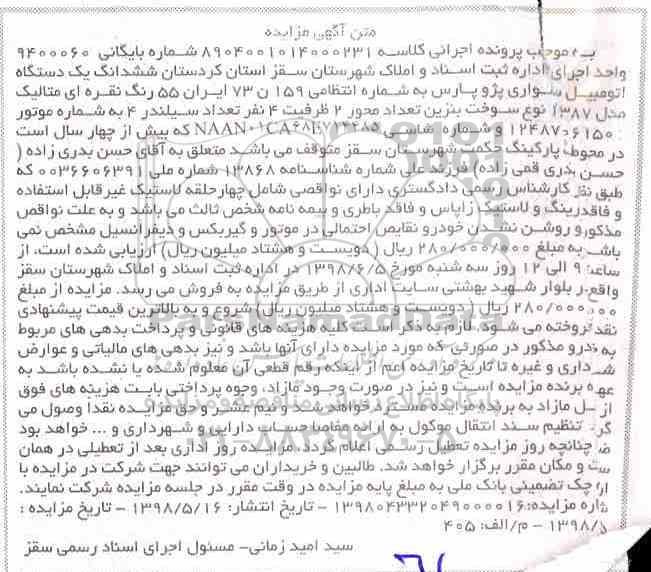 متن آگهی مزایده
به موجب پرونده اجرائی کلاسه ۸۹۰۴۰۰۱۰۱۴۰۰۰۲۳۱ شماره بایگانی ۹۴۰۰۰۶۰
واحد اجرای اداره ثبت اسناد و املاک شهرستان سقز استان کردستان ششدانگ یک دستگاه
اتومبیل سواری پژو پارس به شماره انتظامی ۱۵۹ ن ۷۳ ایران ۵۵ رنگ نقره ای متالیک
مدل ۱۳۸۷ نوع سوخت بنزین تعداد محور ۲ ظرفیت ۴ نفر تعداد سیلندر ۴ به شماره موتور
و شماره شاسی که بیش از چهار سال است
در محوطه پارکینگ حکمت شهرستان سقز متوقف می باشد متعلق به آقای حسن بدری زاده (
حسن بدری قمی زاده) فرزند علی شماره شناسنامه ۱۳۸۶۸ شماره ملی ۰۰۳۶۶۰۶۳۹۱ که
طبق نظر کارشناس رسمی دادگستری دارای نواقصی شامل چهارحلقه لاستیک غیرقابل استفاده
و فاقدرینگ و لاستیک زاپاس و فاقد باطری و بیمه نامه شخص ثالث می باشد و به علت نواقص
مذکور و روشن نشدن خودرو نقایص احتمالی در موتور و گیربکس و دیفرانسیل مشخص نمی
باشد به مبلغ ۲۸۰/۰۰۰/۰۰۰ ریال (دویست و هشتاد میلیون ریال) ارزیابی شده است، از
ساعت ۹ الی ۱۲ روز سه شنبه مورخ ۱۳۹۸/۶/۵ در اداره ثبت اسناد و املاک شهرستان سقز
واقع در بلوار شهید بهشتی سایت اداری از طریق مزایده به فروش می رسد. مزایده از مبلغ
۲۸۰/۰۰۰/۰۰۰ ریال (دویست و هشتاد میلیون ریال) شروع و به بالاترین قیمت پیشنهادی
نقد فروخته می شود. لازم به ذکر است کلیه هزینه های قانونی و پرداخت بدهی های مربوط
به خودرو مذکور در صورتی که مورد مزایده دارای آنها باشد و نیز بدهی های مالیاتی و عوارض
شهرداری و غیره تا تاریخ مزایده اعم از اینکه رقم قطعی آن معلوم شده یا نشده باشد به
عهده برنده مزایده است و نیز در صورت وجود مازاد، وجوه پرداختی بابت هزینه های فوق
از محل مازاد به برنده مزایده مسترد خواهد شد و نیم عشر و حق مزایده نقدا وصول می
گردد. تنظیم سند انتقال موکول به ارائه مفاصا حساب دارایی و شهرداری و ... خواهد بود
ضمنا چنانچه روز مزایده تعطیل رسمی اعلام گردد، مزایده روز اداری بعد از تعطیلی در همان
ساعت و مکان مقرر برگزار خواهد شد. طالبین و خریداران می توانند جهت شرکت در مزایده با
ارائه چک تضمینی بانک ملی به مبلغ پایه مزایده در وقت مقرر در جلسه مزایده شرکت نمایند.
شماره مزایده: ۱۳۹۸۰۴۳۳۲۰۴۹۰۰۰۰۱۶ – تاریخ انتشار: ۱۳۹۸/۵/۱۶ – تاریخ مزایده :
– م/الف: ۴۰۵
سید امید زمانی- مسئول اجرای اسناد رسمی سقز